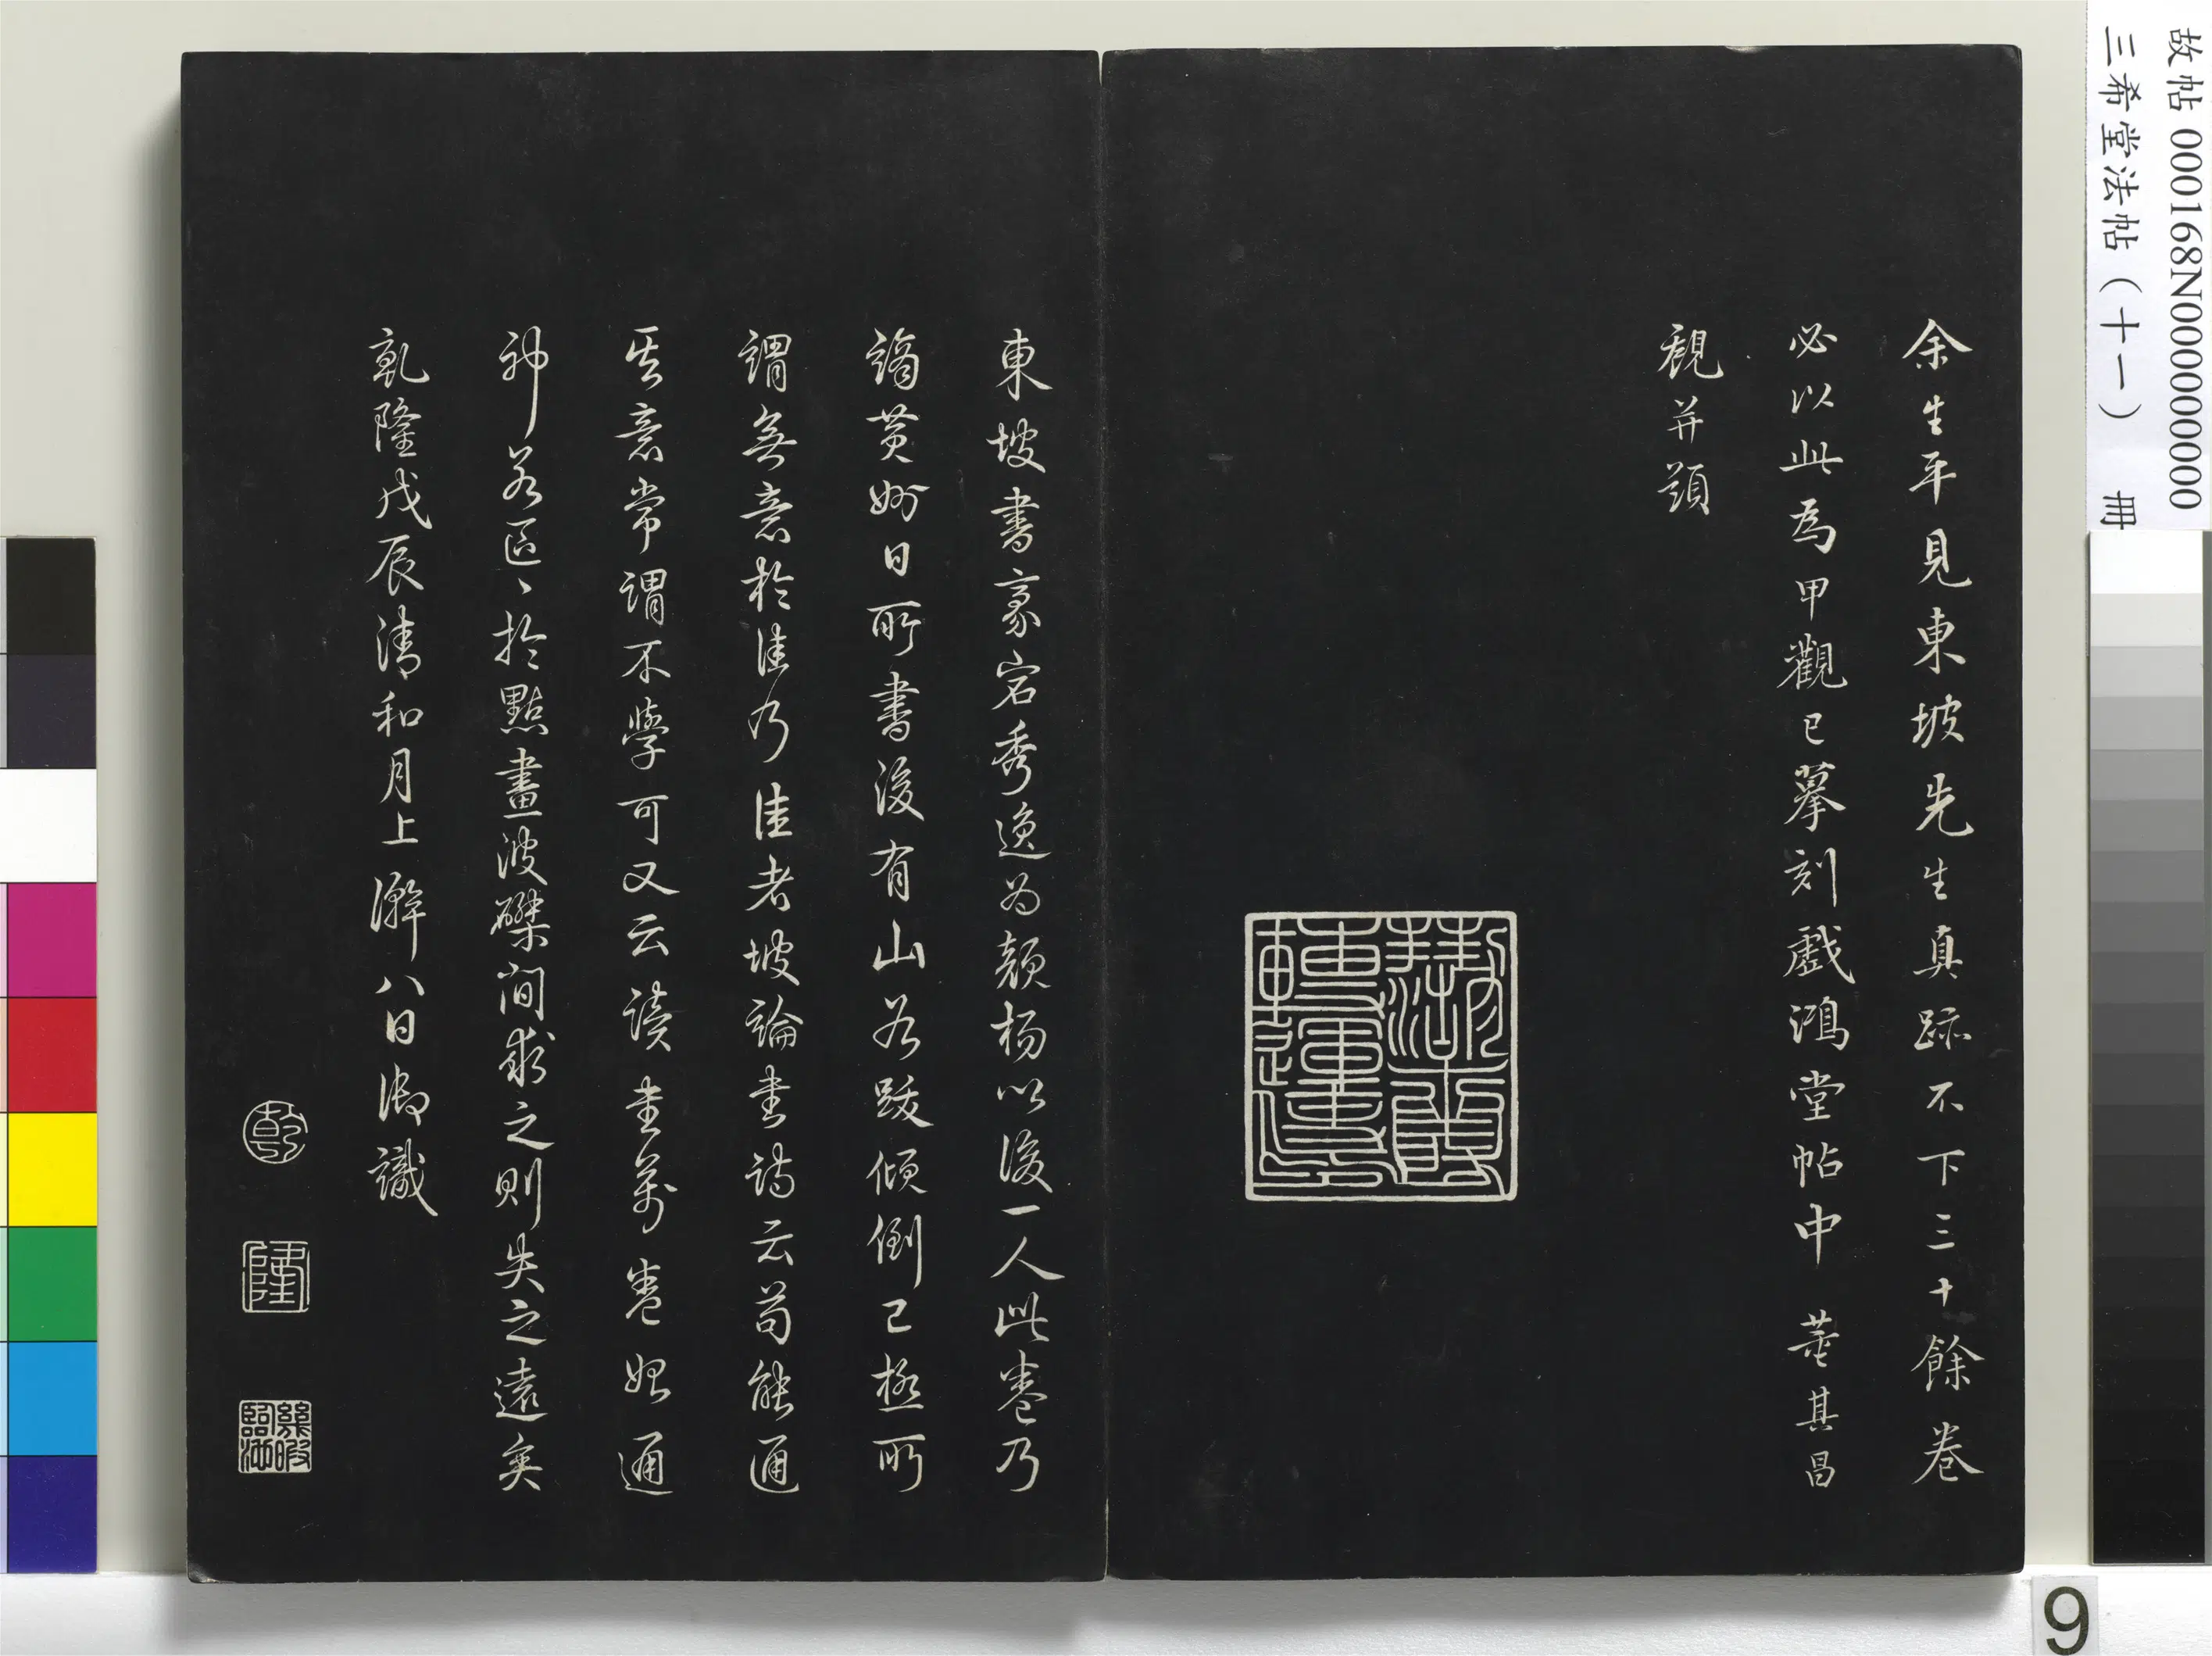 故帖 000168N000000000
三希堂法帖（十一） 冊
余生平見東坡先生真跡不下三十餘卷
必以此為甲觀已摹刻戲鴻堂帖中 董其昌
觀并題
東坡書豪宕秀逸為顏楊以後一人此卷乃
謫黃州日所書後有山谷跋傾倒已極所
謂無意於佳乃佳者坡論書詩云苟能通
其意常謂不學可又云讀書萬卷始通
神若區〻於點畫波磔間求之則失之遠矣
乾隆戊辰清和月上澣八日御識
乾
隆
幾暇臨池
9